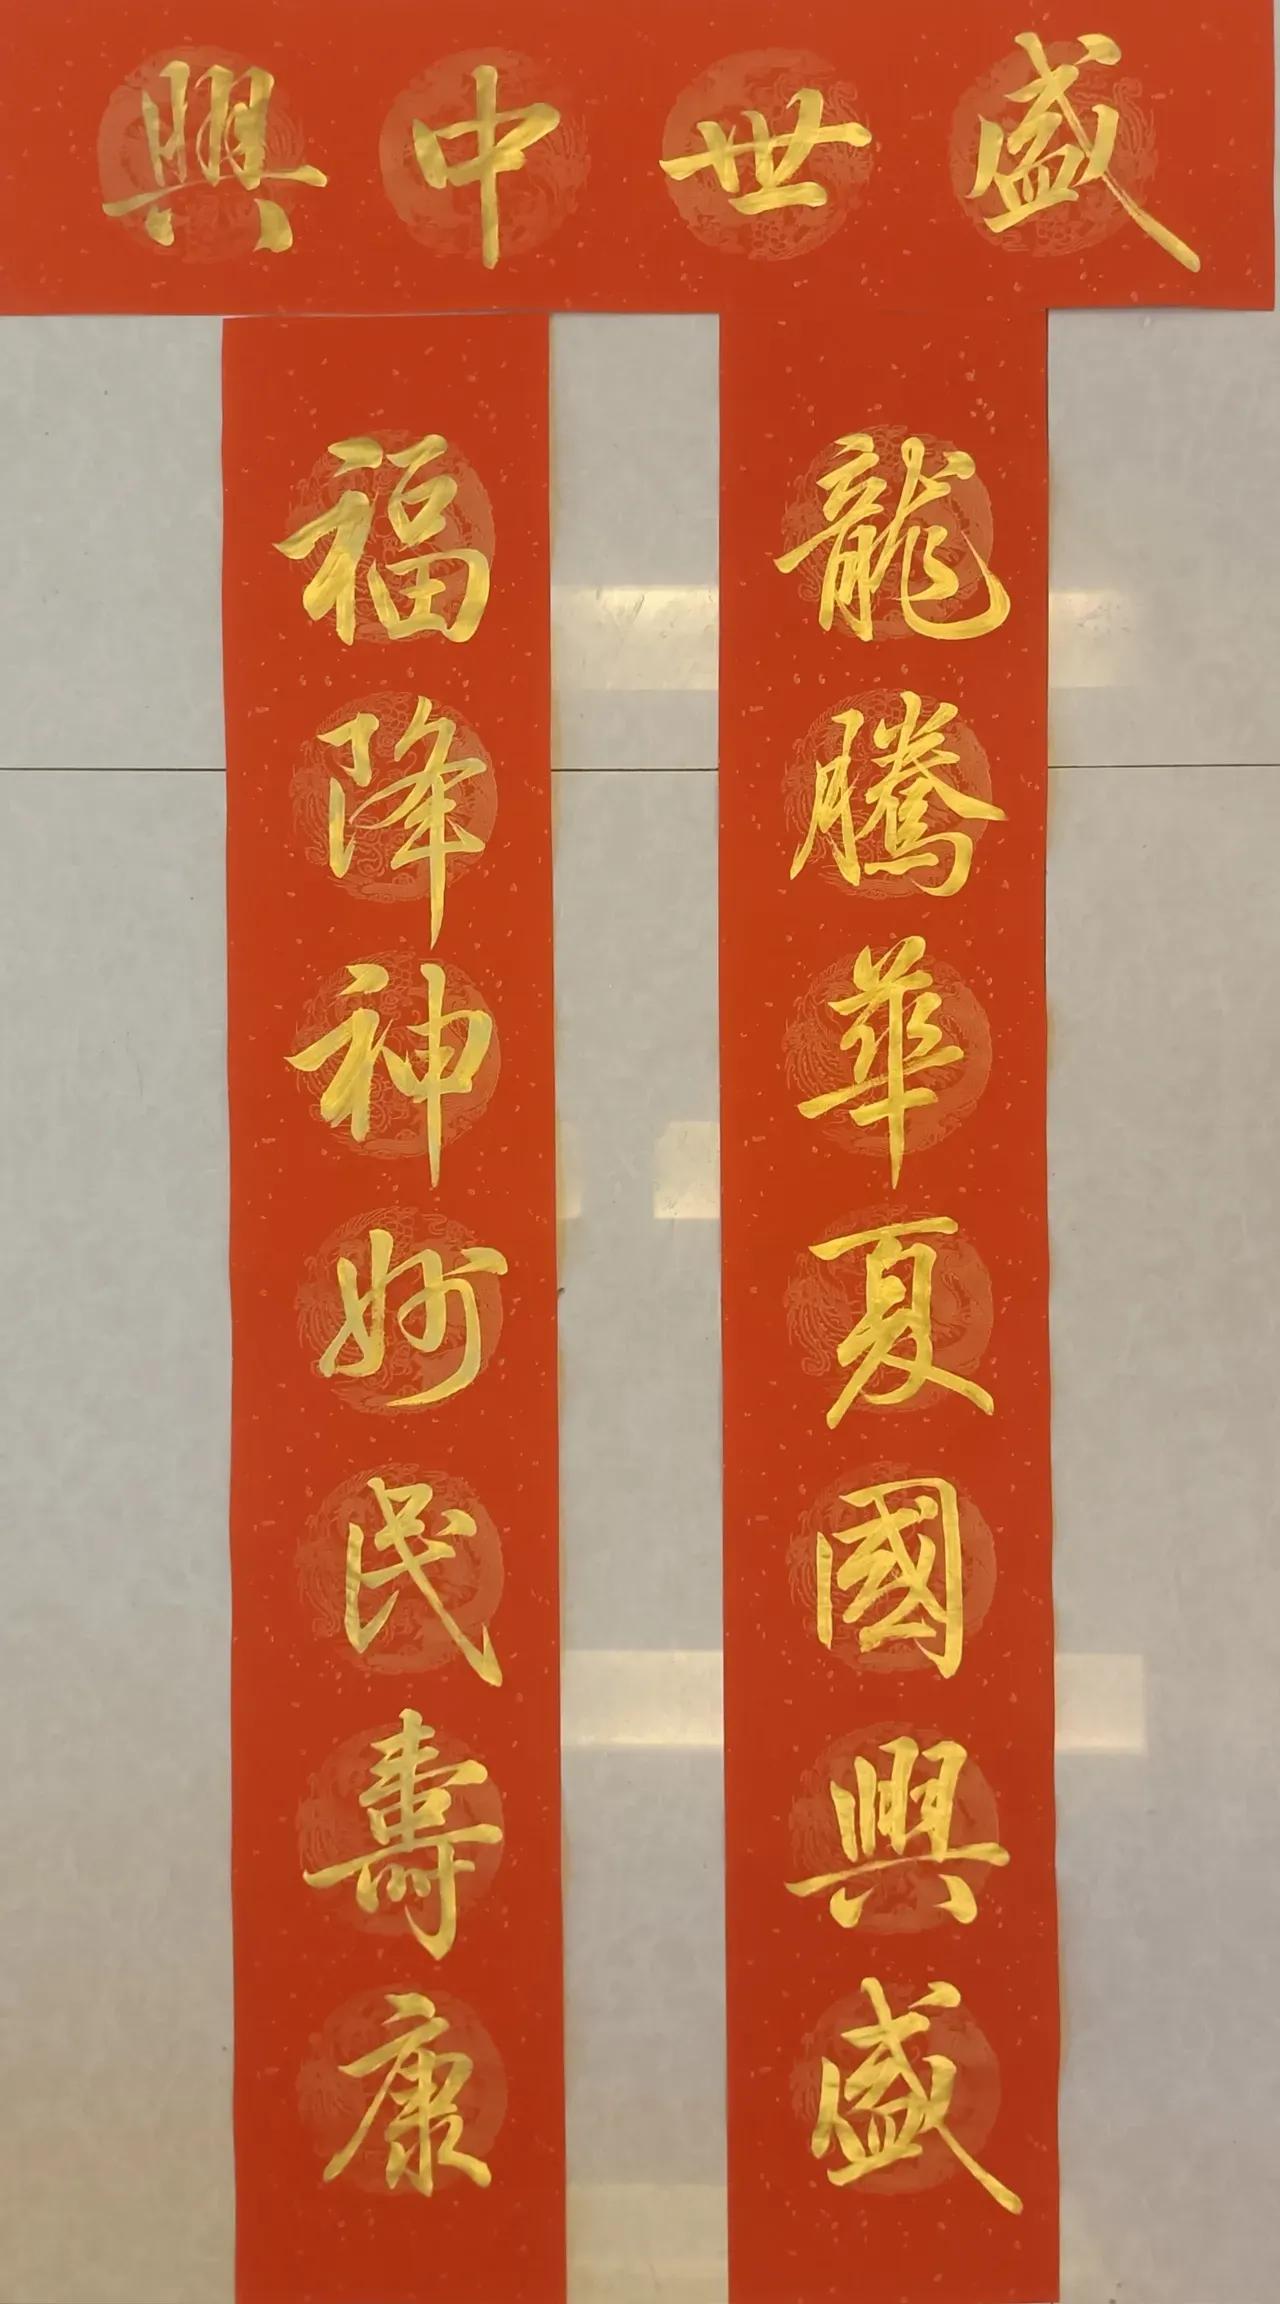 盛世中興
龍騰華夏國興盛
福降神州民壽康